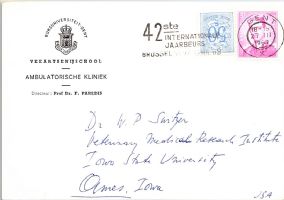 RIJKSUNIVERSITEIT-GENT
VEEARTSENIJSCHOOL
AMBULATORISCHE KLINIEK
Directeur: Prof Dr. F. PAREDIS
42ste
INTERNATIONALE
JAARBEURS
BRUSSEL
GENT
Dr W P Switzer
Veterinary Medical Research Institute
Iowa State University
Ames, Iowa
USA